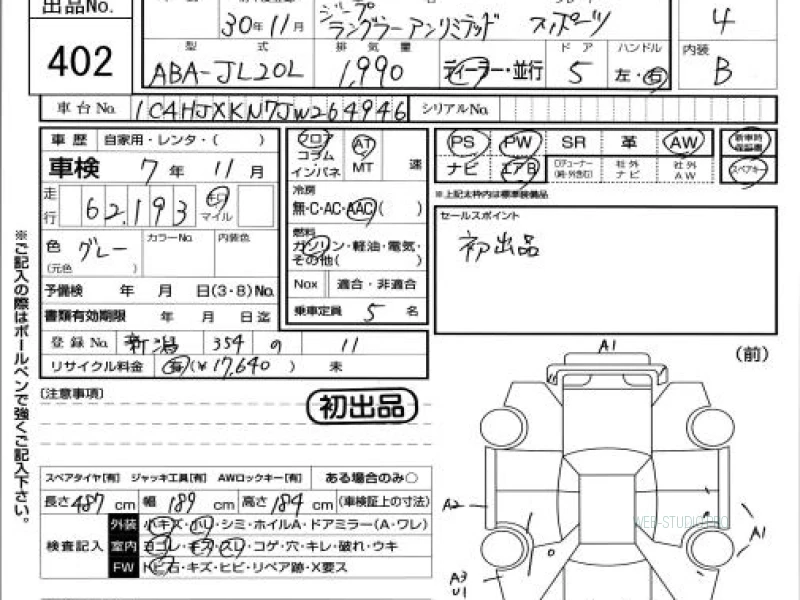 出品No.
402
30年11月
ジープ
ラングラーアンリミテッド スポーツ
4
型 式
排 気 量
ドア
ハンドル
内装
ABA-JL20L
1,990
ディーラー・並行
5
左・右
B
車台No. 1C4HJXKN7JW264946 シリアルNo.
車歴 自家用・レンタ・( )
車検 7年 11月
走行 62,193 km マイル
色 グレー
(元色 )
カラーNo.
内装色
予備検 年 月 日(3・8)No.
書類有効期限 年 月 日迄
登録No. 新潟 354 の 11
リサイクル料金 有(¥17,640 ) 未
フロア
コラム
インパネ
AT
MT
速
冷房
無・C・AC・AAC( )
燃料
ガソリン・軽油・電気・
その他( )
Nox 適合・非適合
乗車定員 5 名
PS PW SR 革 AW
ナビ エアB
社外ナビ
社外AW
新車時保証書
スペアキー
※上記太枠内は標準装備品
セールスポイント
初出品
※ご記入の際はボールペンで強くご記入下さい。
[注意事項]
初出品
スペアタイヤ[有] ジャッキ工具[有] AWロックキー[有] ある場合のみ○
長さ487cm 幅189cm 高さ184cm (車検証上の寸法)
検査記入
外装 小キズ・小凹・シミ・ホイルA・ドアミラー(A・ワレ)
室内 ヨゴレ・キズ・スレ・コゲ・穴・キレ・破れ・ウキ
FW トビ石・キズ・ヒビ・リペア跡・X要ス
A1
(前)
A2
A1
A3
U1
WEB-STUDIO.PRO